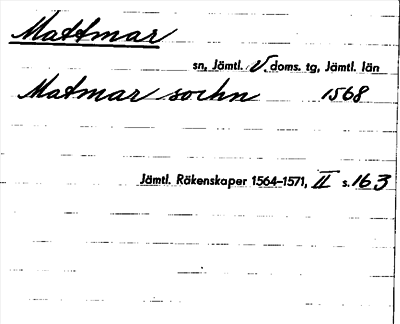 Mattmar
sn, Jämtl. V doms. tg, Jämtl. län
Matmar sochn 1568
Jämtl. Räkenskaper 1564–1571, II s. 163